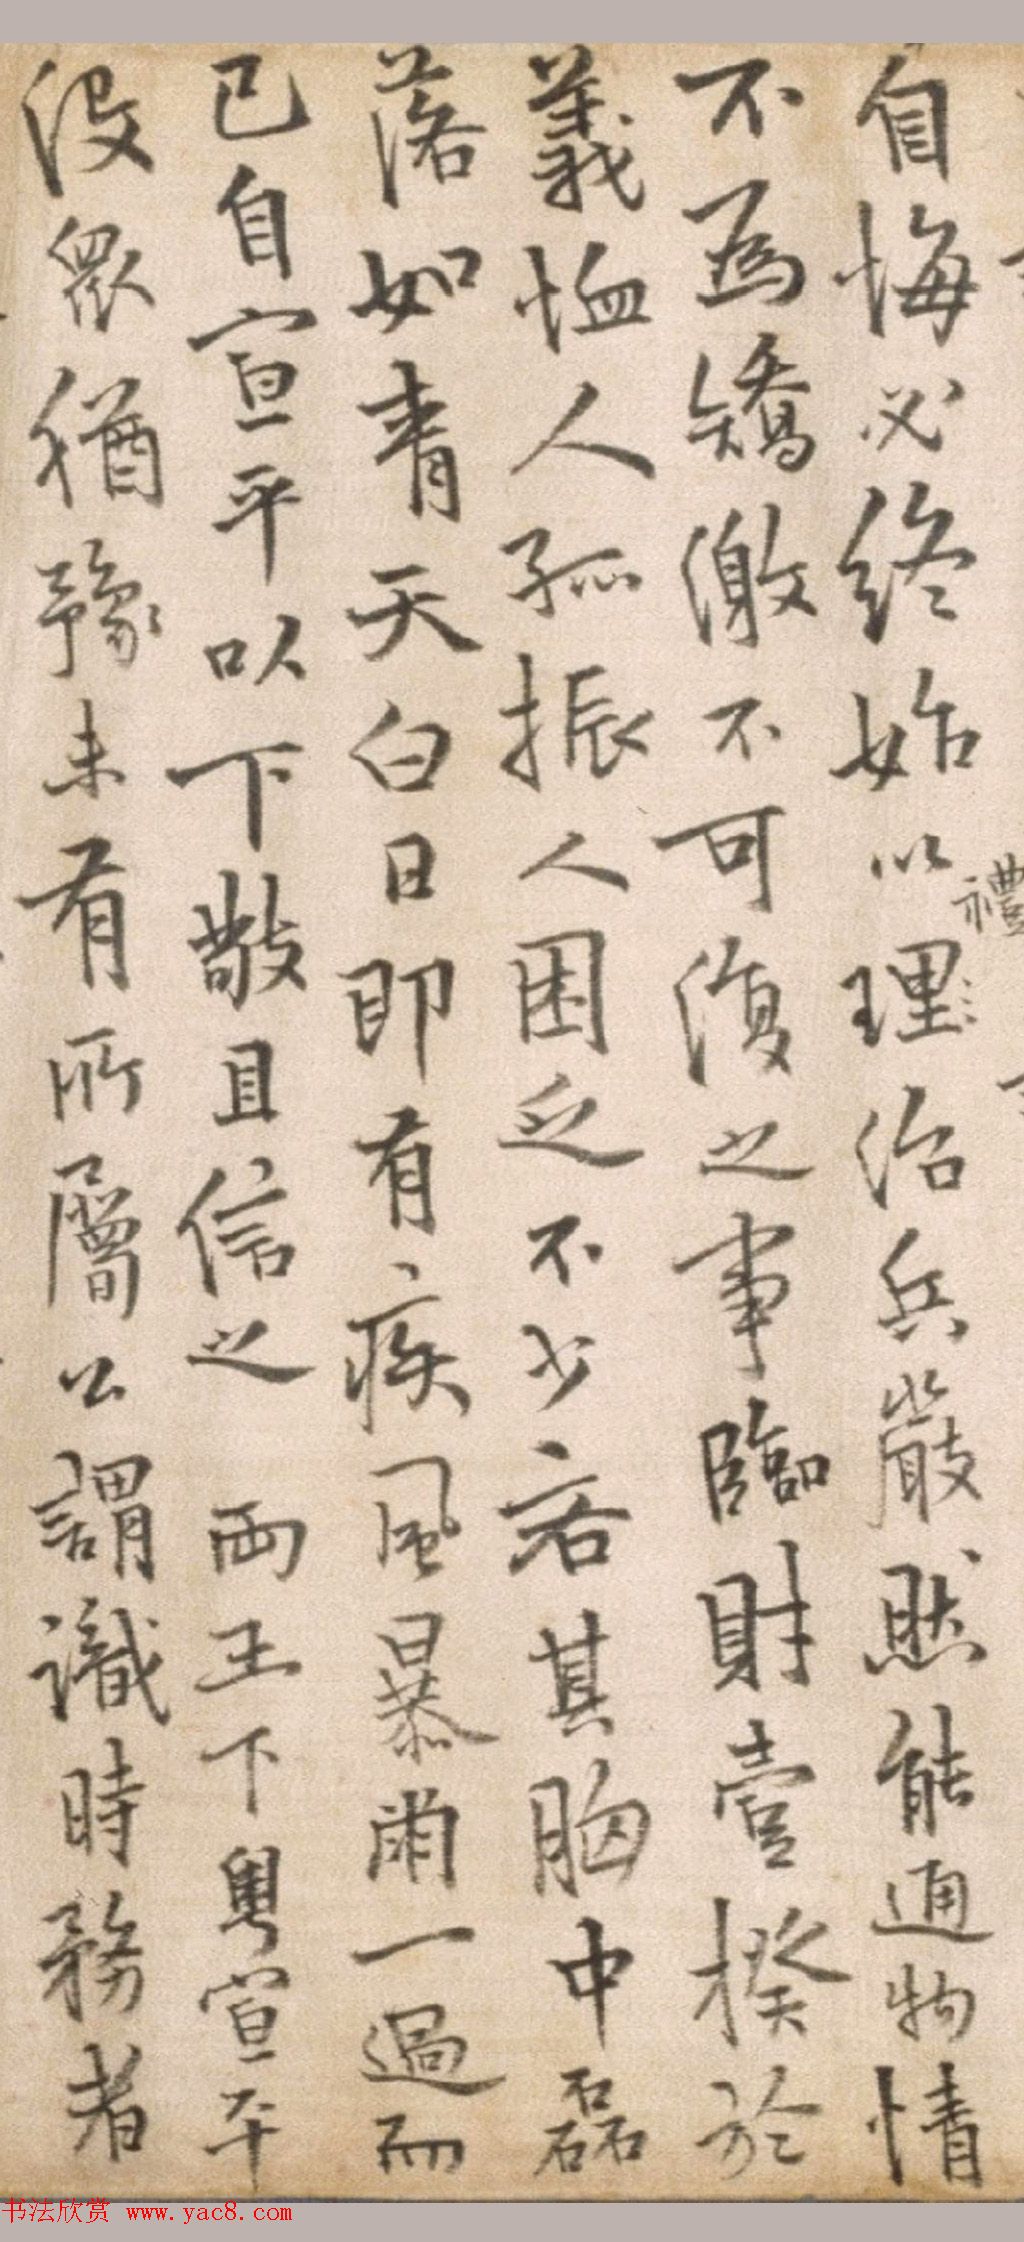 自悔必終始以理治兵嚴然能通物情
禮
不為矯激不可復之事臨財壹揆於
義恤人孤振人困乏不少吝其胸中磊
落如青天白日即有疾風暴雨一過而
已自宣平以下敬且信之 兩王下粵宣平
沒眾猶豫未有所屬公謂識時務者
书法欣赏 www.yac8.com